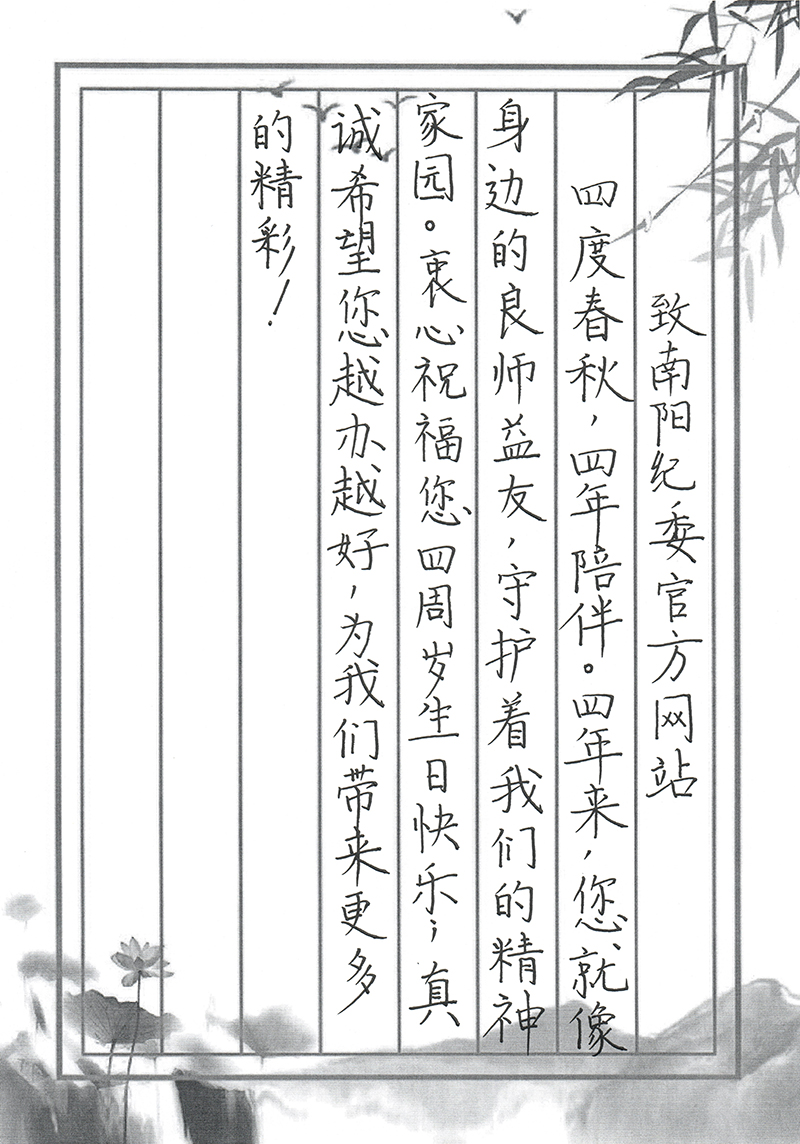 致南阳纪委官方网站
四度春秋，四年陪伴。四年来，您就像
身边的良师益友，守护着我们的精神
家园。衷心祝福您四周岁生日快乐；真
诚希望您越办越好，为我们带来更多
的精彩！